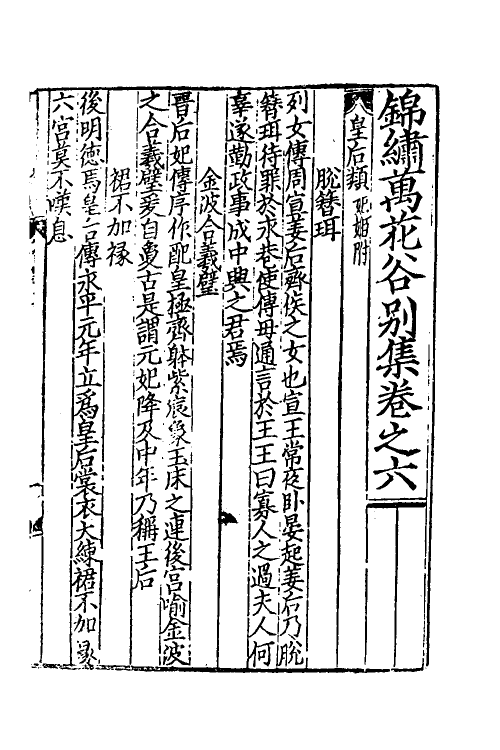 錦繡萬花谷别集卷之六
皇后類 妃姬附
脫簪珥
列女傳周宣姜后齊侯之女也宣王常夜卧晏起姜后乃脫
簪珥待罪於永巷使傳母通言於王王曰寡人之過夫人何
辜遂勤政事成中興之君焉
金波合羲璧
晉后妃傳序作配皇極齊躰紫宸象玉床之連後宮喻金波
之合羲璧爰自夐古是謂元妃降及中年乃稱王后
裙不加褖
後明德馬皇后傳永平元年立爲皇后裳衣大練裙不加
六宮莫不嘆息